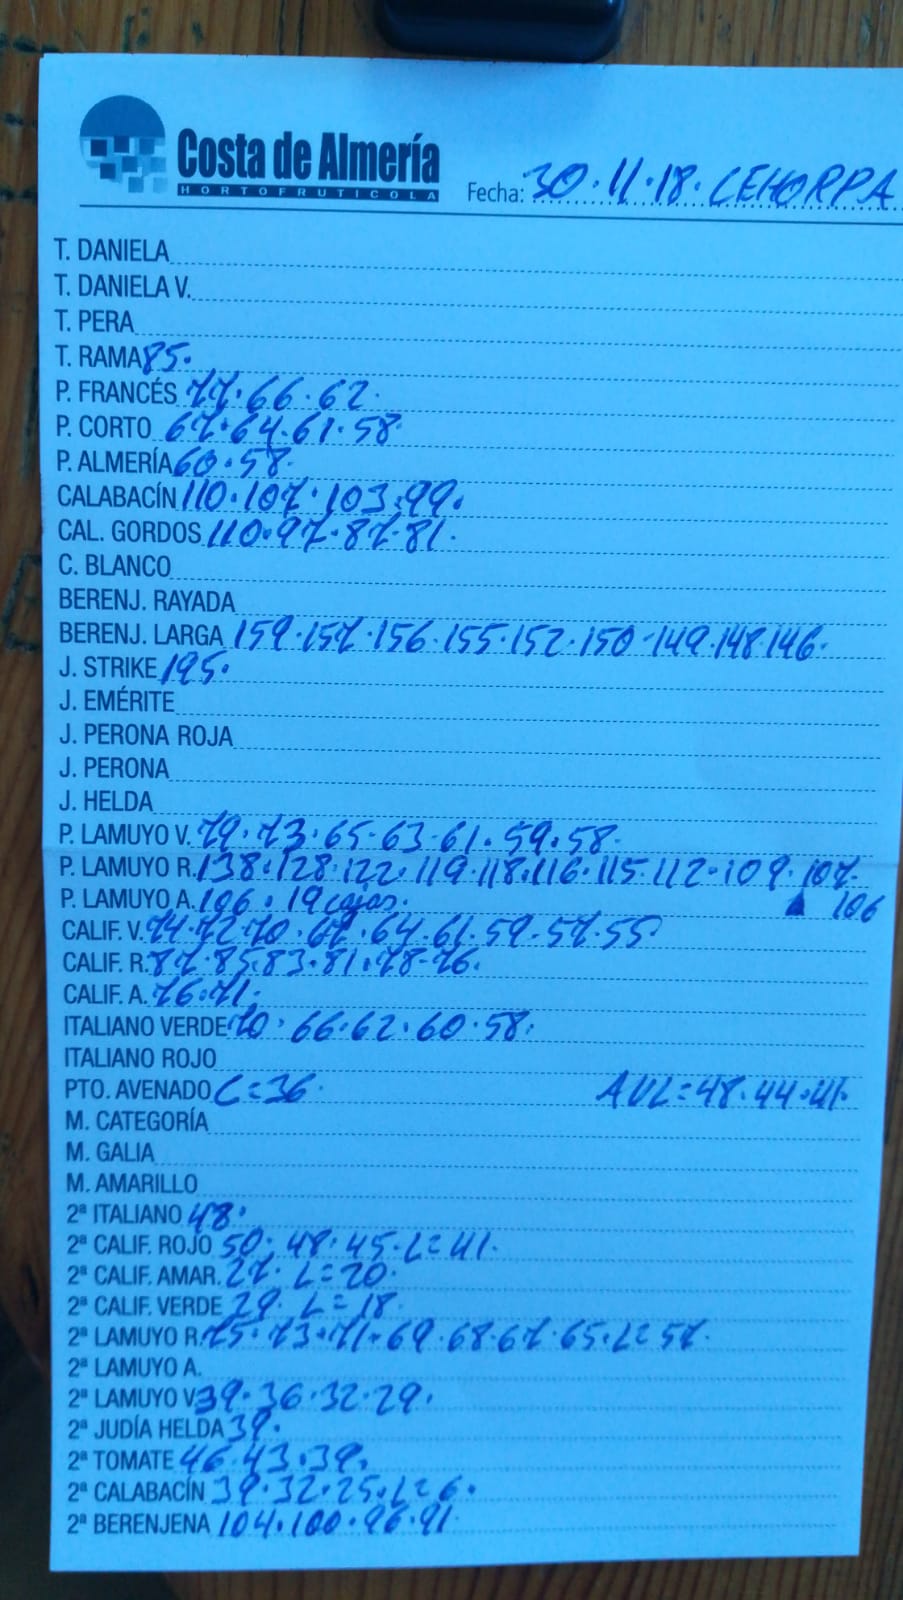 Costa de Almería
HORTOFRUTICOLA
Fecha: 30.11.18. CEHORPA
T. DANIELA
T. DANIELA V.
T. PERA
T. RAMA 85.
P. FRANCÉS 77.66.62.
P. CORTO 67.64.61.58.
P. ALMERÍA 60.58.
CALABACÍN 110.107.103.99.
CAL. GORDOS 110.97.87.81.
C. BLANCO
BERENJ. RAYADA
BERENJ. LARGA 159.157.156.155.152.150.149.148.146.
J. STRIKE 195.
J. EMÉRITE
J. PERONA ROJA
J. PERONA
J. HELDA
P. LAMUYO V. 79.73.65.63.61.59.58.
P. LAMUYO R. 138.128.122.119.118.116.115.112.109.107.
P. LAMUYO A. 106.19 cajas. 106
CALIF. V. 74.72.70.67.64.61.59.57.55
CALIF. R. 87.85.83.81.78.76.
CALIF. A. 76.71.
ITALIANO VERDE 70.66.62.60.58.
ITALIANO ROJO
PTO. AVENADO C=36. AVL=48.44.41.
M. CATEGORÍA
M. GALIA
M. AMARILLO
2ª ITALIANO 48.
2ª CALIF. ROJO 50.48.45.L=41.
2ª CALIF. AMAR. 27. L=20.
2ª CALIF. VERDE 29. L=18.
2ª LAMUYO R. 75.73.71.69.68.67.65.L=57.
2ª LAMUYO A.
2ª LAMUYO V. 39.36.32.29.
2ª JUDÍA HELDA 39.
2ª TOMATE 46.43.39.
2ª CALABACÍN 39.32.25.L=6.
2ª BERENJENA 104.100.96.91.